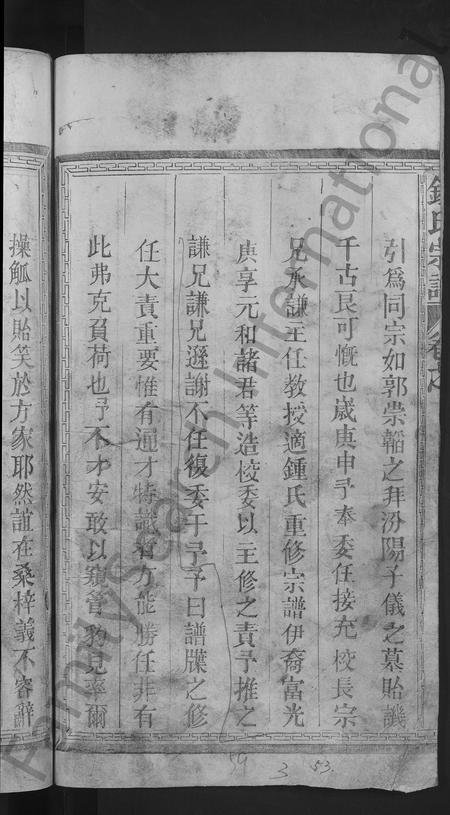 鍾氏宗譜
引爲同宗如郭崇韜之拜汾陽子儀之墓貽譏
千古良可慨也歲庚申予奉委任接充校長宗
兄承謙主任教授適鍾氏重修宗譜伊裔富光
庚享元和諸君等造校委以主修之責予推之
謙兄謙兄遜謝不任復委于予予曰譜牒之修
任大責重要惟有通才特識者方能勝任非有
此弗克負荷也予不才安敢以窺管豹見率爾
操觚以貽笑於方家耶然誼在桑梓義不容辭
59
3
53
FamilySearch International